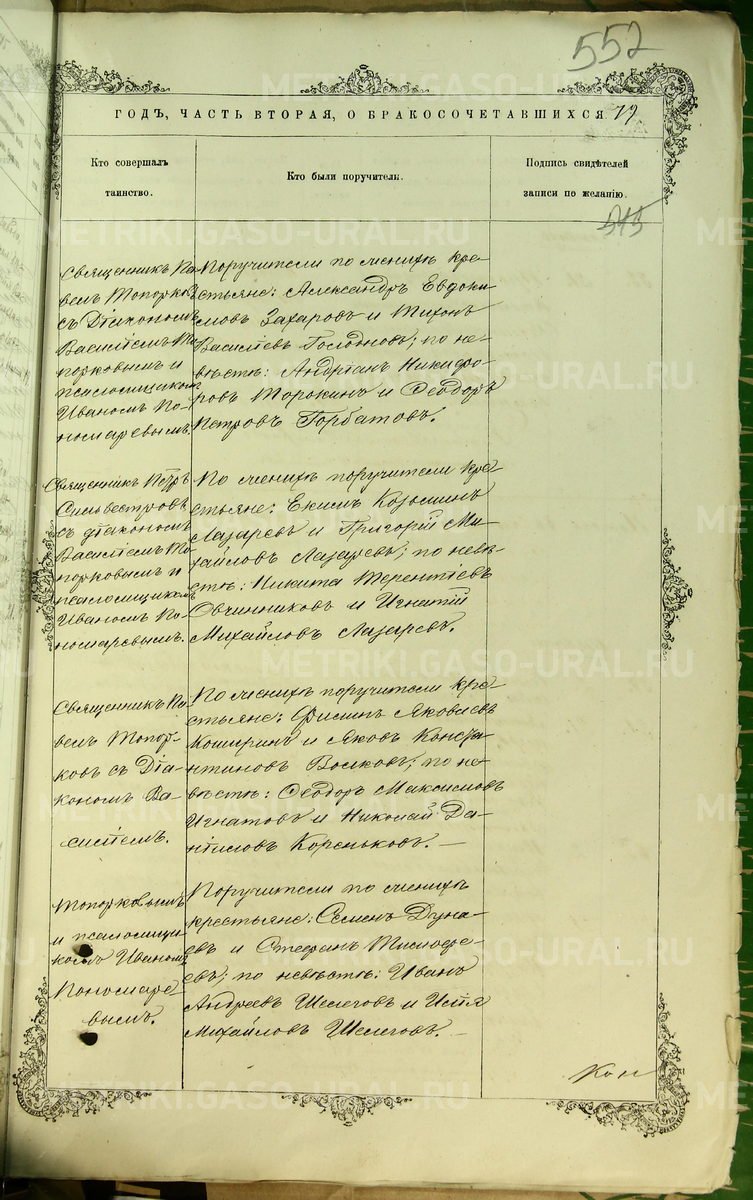 552
ГОДЪ, ЧАСТЬ ВТОРАЯ, О БРАКОСОЧЕТАВШИХСЯ 79
Кто совершалъ
таинство.
Кто были поручители.
Подпись свидѣтелей
записи по желанію.
545
Священникъ Па-
велъ Топорковъ
съ Діакономъ
Василіемъ То-
порковымъ и
псаломщикомъ
Иваномъ По-
номаревымъ.
Поручители по женихѣ кре-
стьяне: Александръ Евдоки-
мовъ Захаровъ и Тихонъ
Василіевъ Голодновъ; по не-
вѣстѣ: Андріанъ Никифо-
ровъ Торокинъ и Ѳеодоръ
Петровъ Горбатовъ.
Священникъ Петръ
Сильвестровъ
съ діакономъ
Василіемъ То-
порковымъ и
псаломщикомъ
Иваномъ По-
номаревымъ.
По женихѣ поручители кре-
стьяне: Екимъ Козьминъ
Лазаревъ и Григорій Ми-
хайловъ Лазаревъ; по невѣ-
стѣ: Никита Терентіевъ
Овчинниковъ и Игнатій
Михайловъ Лазаревъ.
Священникъ Па-
велъ Топор-
ковъ съ Діа-
кономъ Ва-
силіемъ.
По женихѣ поручители кре-
стьяне: Филипъ Яковлевъ
Кошкринъ и Яковъ Констан-
тиновъ Волковъ; по не-
вѣстѣ: Ѳеодоръ Максимовъ
Игнатовъ и Николай Да-
ніиловъ Кореньковъ. —
Топорковымъ
и псаломщи-
комъ Иваномъ
Пономаре-
вымъ.
Поручители по женихѣ
крестьяне: Семенъ Дуна-
евъ и Стефанъ Тимофе-
евъ; по невѣстѣ: Иванъ
Андреевъ Шелеговъ и Илія
Михайловъ Шелеговъ. —
Кон
METRIKI.GASO-URAL.RU